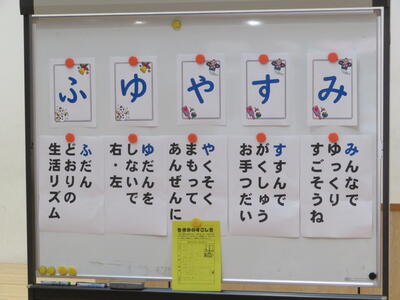 ふ
ゆ
や
す
み
ふだん
どおりの
生活リズム
ゆだんを
しないで
右・左
やくそく
まもって
あんぜんに
すすんで
がくしゅう
お手つだい
みんなで
ゆっくり
すごそうね